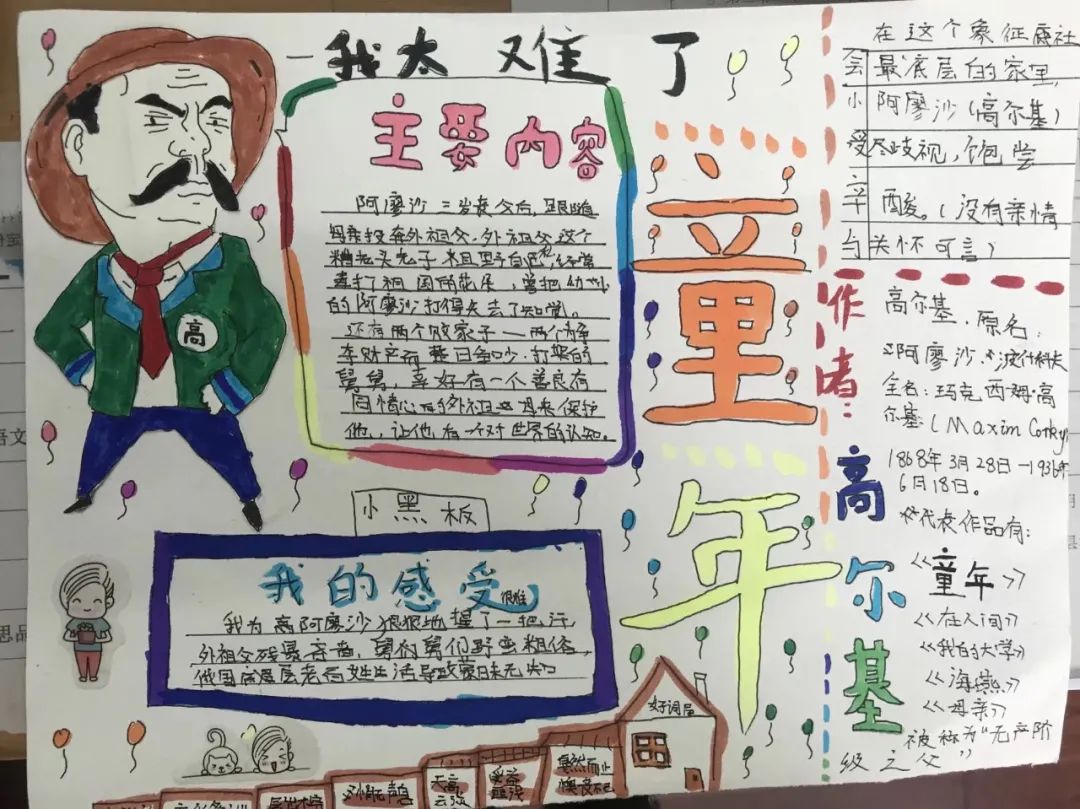 我太难了
主要内容
阿廖沙三岁丧父后，跟随
母亲投奔外祖父，外祖父这个
糟老头
毒打祖国的花朵，曾把幼小
的阿廖沙打得失去了知觉。
还有两个败家子一两个
舅舅，幸好有一个善良有
同情心的外祖母来保护
他，让他有一个对世界的认知。
高
小黑板
我的感受
很难
我为高阿廖沙狠狠地握了一把汗，
外祖父残暴吝啬，舅舅们野蛮粗俗，
俄国底层老百姓生活
好词屋
天高
云淡
戛然而止
童年
在这个象征底社
会最底层的家里，
小阿廖沙（高尔基）
受尽歧视，饱尝
辛酸。（没有亲情
与关怀可言）
作者：
高尔基
高尔基，原名：
阿廖沙·
全名：玛克西姆·高
尔基（Maxim Gorky）
1868年3月28日—1936年
6月18日。
代表作品有：
《童年》
《在人间》
《我的大学》
《海燕》
《母亲》
被称为“无产阶
级之父”